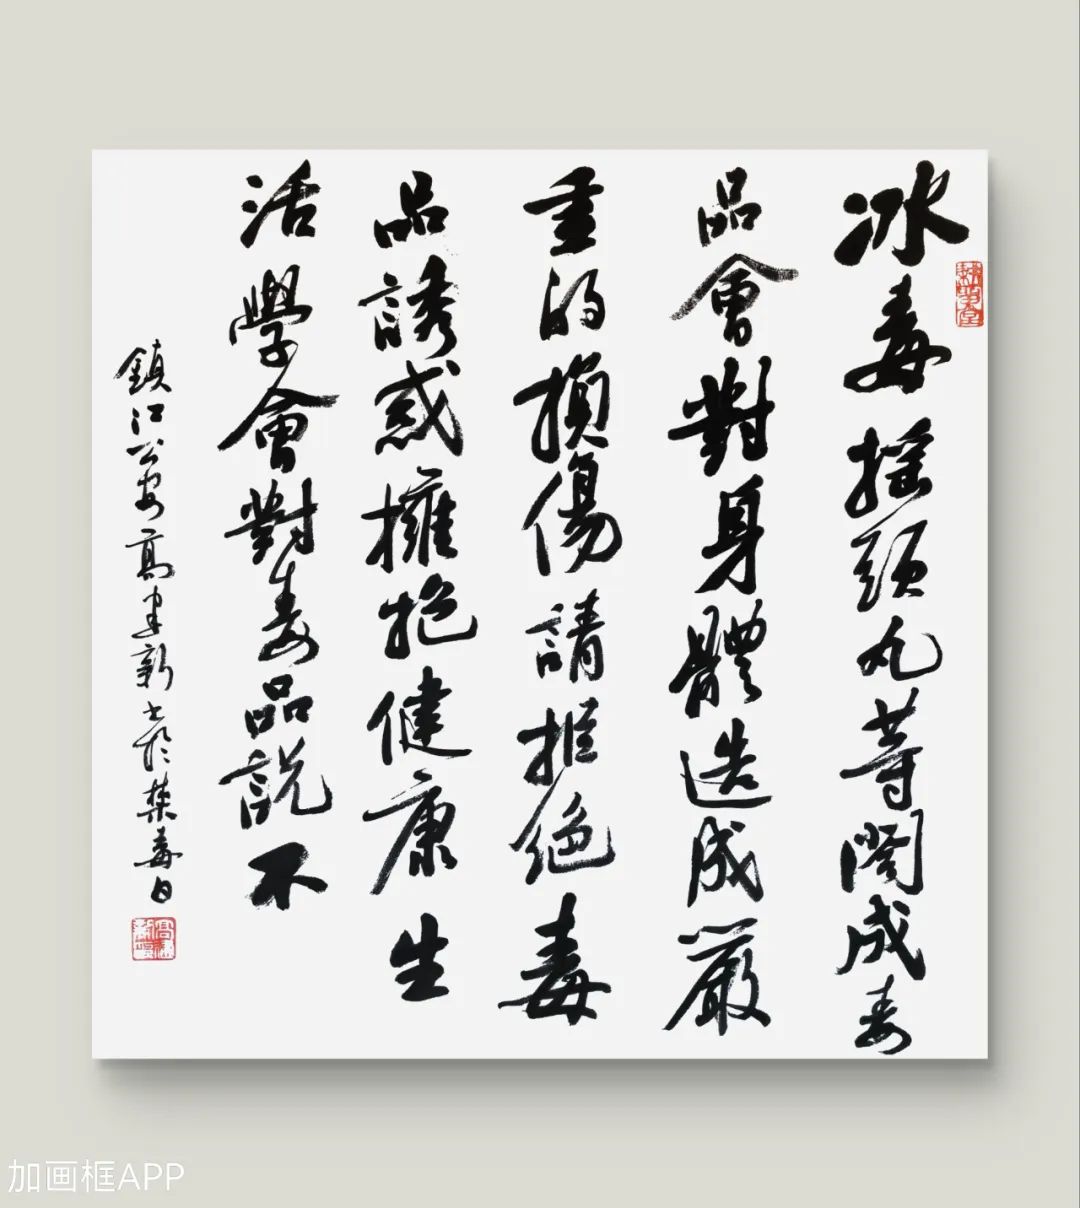 冰毒摇頭丸等閤成毒
品會對身體造成嚴
重的損傷請拒絕毒
品誘惑擁抱健康生
活學會對毒品説不
鎮江公安高建新書於禁毒日
加画框APP